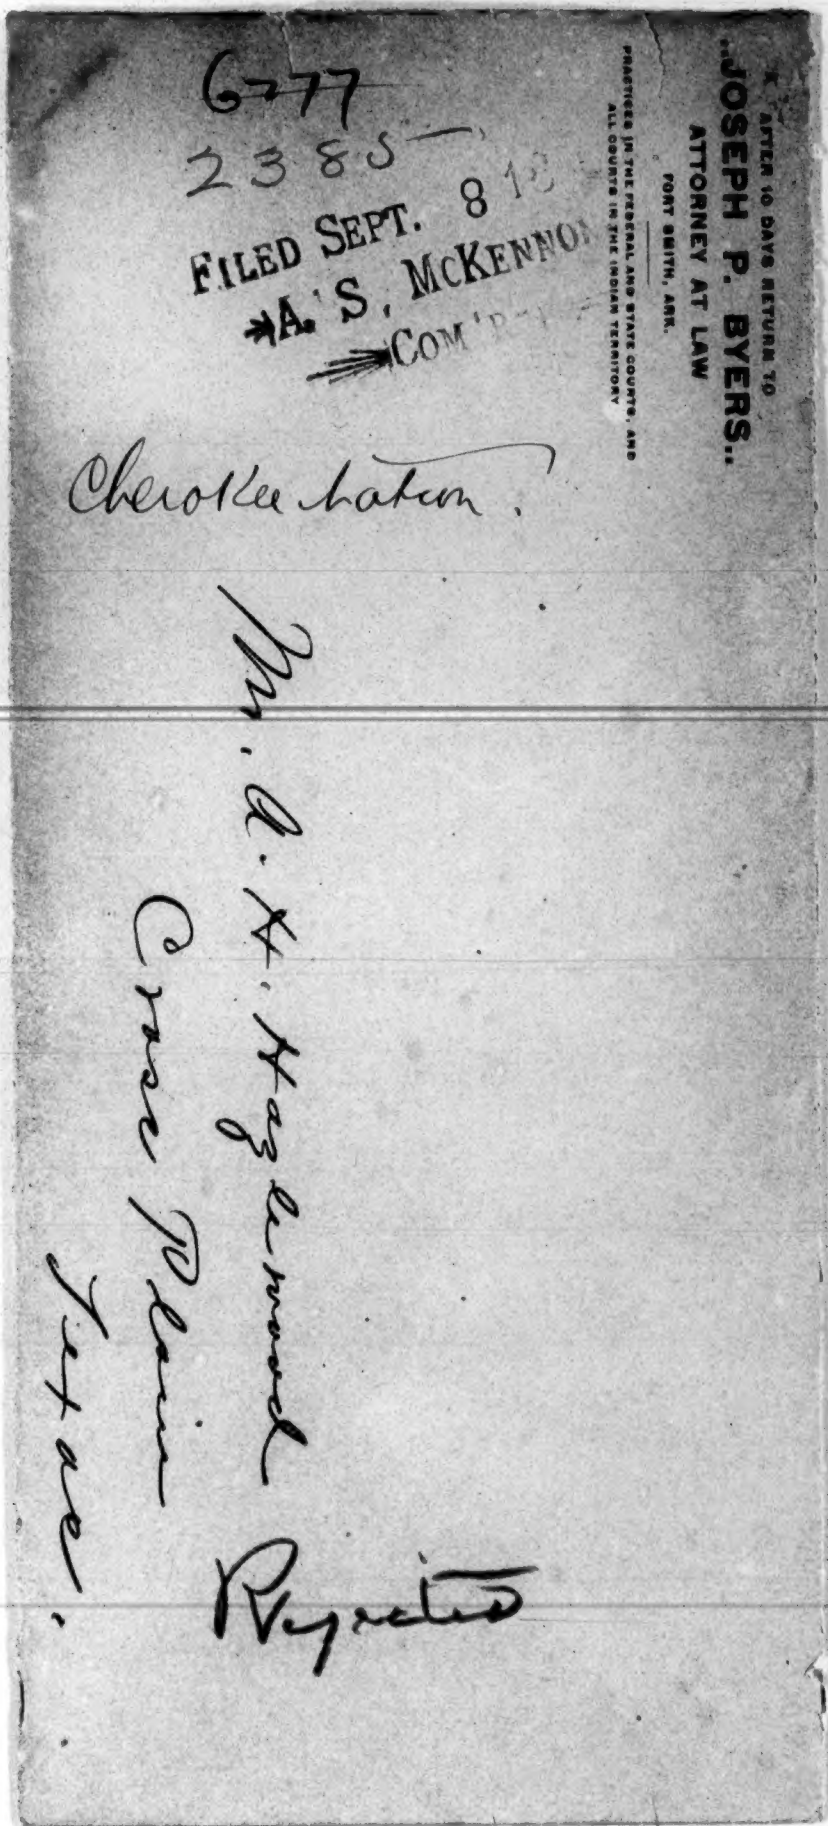 6777
2385
FILED SEPT. 8 18
A. S. McKENNON
COM'R
Cherokee Nation.
AFTER 10 DAYS RETURN TO
..JOSEPH P. BYERS..
ATTORNEY AT LAW
FORT SMITH, ARK.
PRACTICES IN THE FEDERAL AND STATE COURTS, AND
ALL COURTS IN THE INDIAN TERRITORY
Mr. A. H. Hazlewood
Cross Plain
Texas.
Rejected